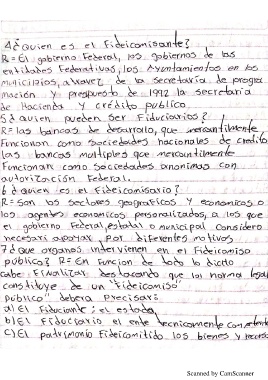 4¿Quien es el Fideicomisante?
R= El gobierno Federal, los gobiernos de las
entidades Federativas, los Ayuntamientos en los
municipios, atravez de la secretaría de progra
mación y prespuesto de 1992 la secretaria
de Hacienda y crédito publico.
5¿Quien pueden ser Fiduciarios?
R= las bancas de desarrollo, que mercantilmente
Funcionan como sociedades nacionales de credito
las bancas multiples que mercantilmente
Funcionan como sociedades anonimas con
autorización Federal.
6¿Quien es el Fideicomisario?
R= son los sectores geograficos y economicos o
los agentes economicos personalizados, a los que
el gobierno Federal, estatal o municipal considero
necesari apoyar por diferentes motivos
7¿que organos intervienen en el Fideicomiso
público? R= En Funcion de todo lo dicto
cabe Finalizar destacando que la norma legal
constituye de un "Fideicomiso
publico" debera precisar:
a) El Fiduciante: el estado
b) El Fiduciario el ente tecnicamente
c) El patrimonio Fideicomitido los bienes y
Scanned by CamScanner